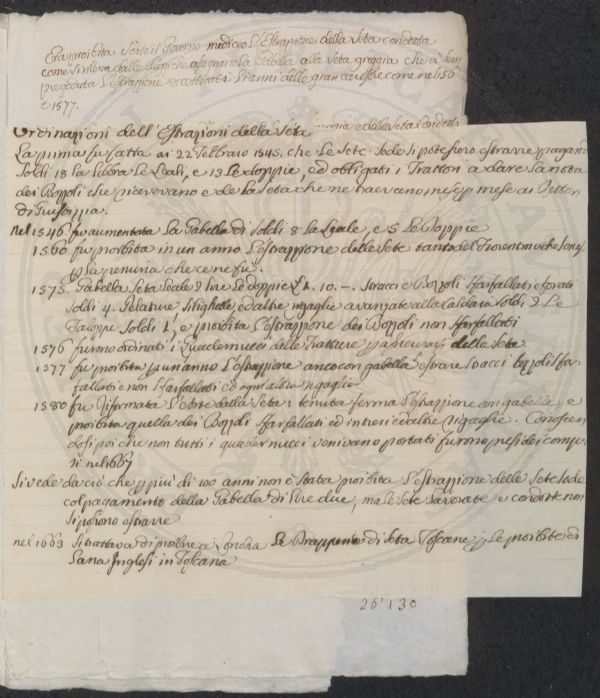 Era proibita sotto il Governo mediceo l'Estrazione della Seta condotta
come si ricava dalle
l'Estrazione eccettuati i anni delle gran carestie come nel 156
e 1577.
Ordinazioni dell'Estrazioni della Seta
La prima fu fatta ai 22 Febraro 1545. che le Sete Sode si potessero estrarre pagano
Soldi 18 la libbra le Leali, e 13 le doppie, ed obligati i Trattori a dare la nota
dei Bozzoli che ricevevano e de la seta che ne traevano mese p mese ai Rettori
di
nel 1546 fu aumentata la Gabella di Soldi 8 la Leale, e 5 le Doppie
1560 fu proibita in un anno l'estrazzione delle Sete tanto del Fiorentino che
p la penuria che ce ne fu.
1575. Gabella Seta Leale 2 lire le doppie L 1. 10. –. Stracci e Bozzoli sfarfallati e forati
Soldi 4. Pelature ed altre avanzate alla Caldaia Soldi 2 Le
Faloppe Soldi 1, e proibita l'estrazzione dei Bozzoli non sfarfallati
1576 furono ordinati i Quadernucci delle Tratture della Seta
1577 fu proibita p un anno l'estrazzione anco con gabella estrare stracci bozzoli sfar-
fallati e non sfarfallati ed ogni altra
1580 fu riformata l'Arte della Seta: tenuta ferma l'estrazzione con gabella, e
proibita quella dei Bozzoli sfarfallati ed interi ed altre. Conoscen
dosi poi che non tutti i quadernucci venivano portati furono presi dei compu-
ti nel 1667
Si vede da ciò che p più di 100 anni non è stata proibita l'estrazzione delle Sete Sode
col pagamento della Gabella di lire due, ma le Sete lavorate o condotte non
si potevono estrarre
nel 1663 Si trattava di proibire a Londra le Drapperie di Seta Toscane p le proibite di
Lana Inglesi in Toscana
26'130